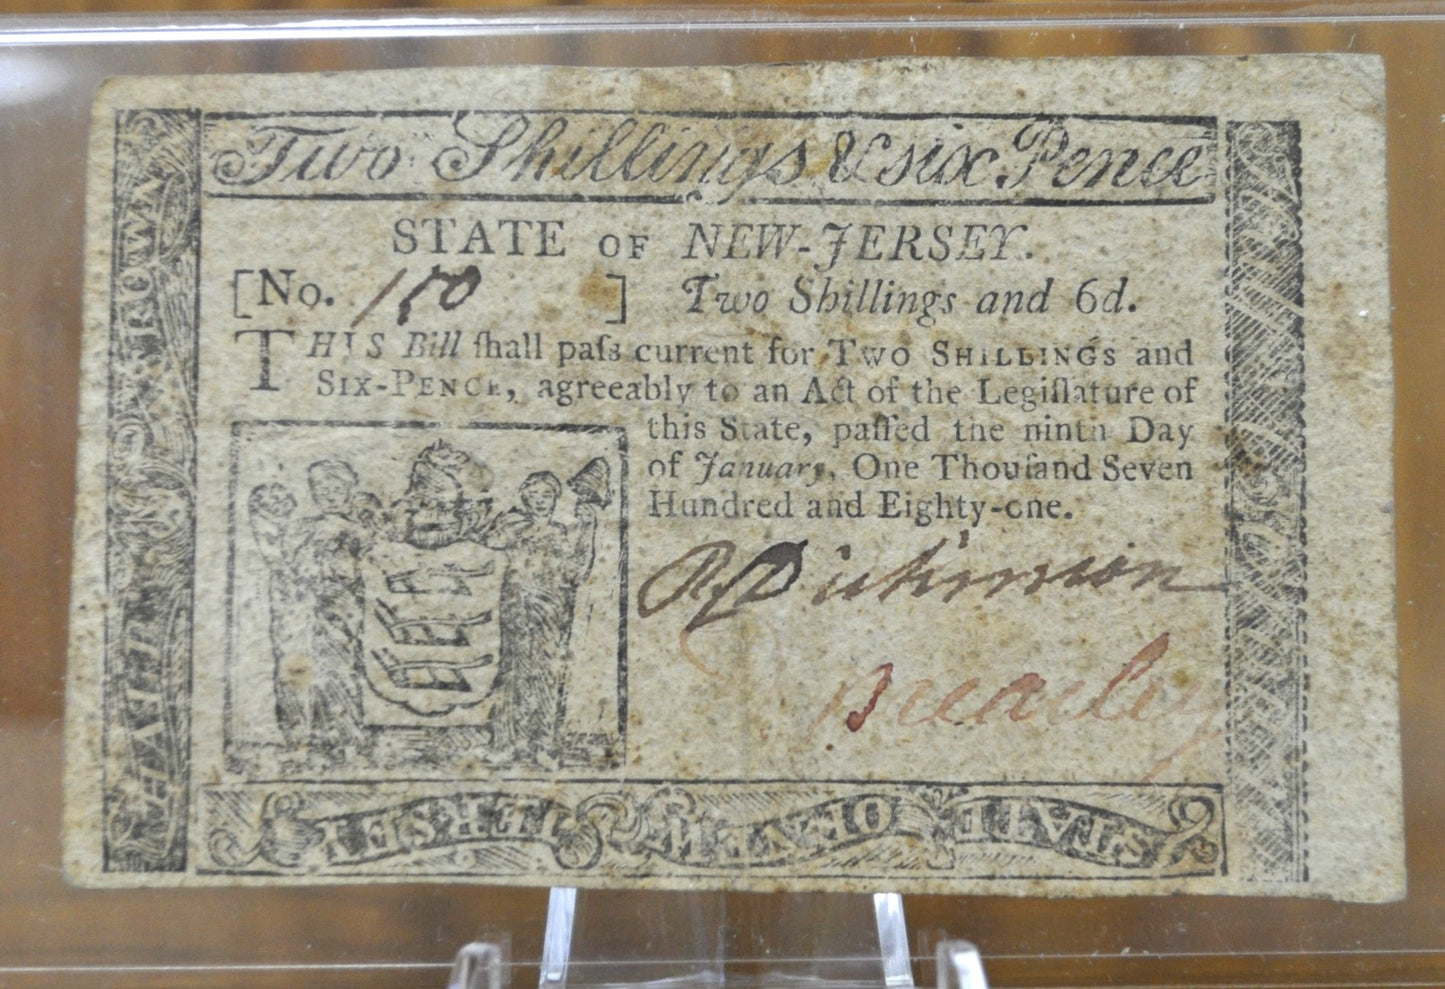 Two Shillings & six Pence
STATE OF NEW-JERSEY.
[No. 150 ] Two Shillings and 6d.
THIS Bill ſhall paſs current for TWO SHILLINGS and
SIX-PENCE, agreeably to an Act of the Legiſlature of
this State, paſſed the ninth Day
of January, One Thouſand Seven
Hundred and Eighty-one.
R Dickinson
Brearley
HALF A CROWN
STATE OF NEW JERSEY